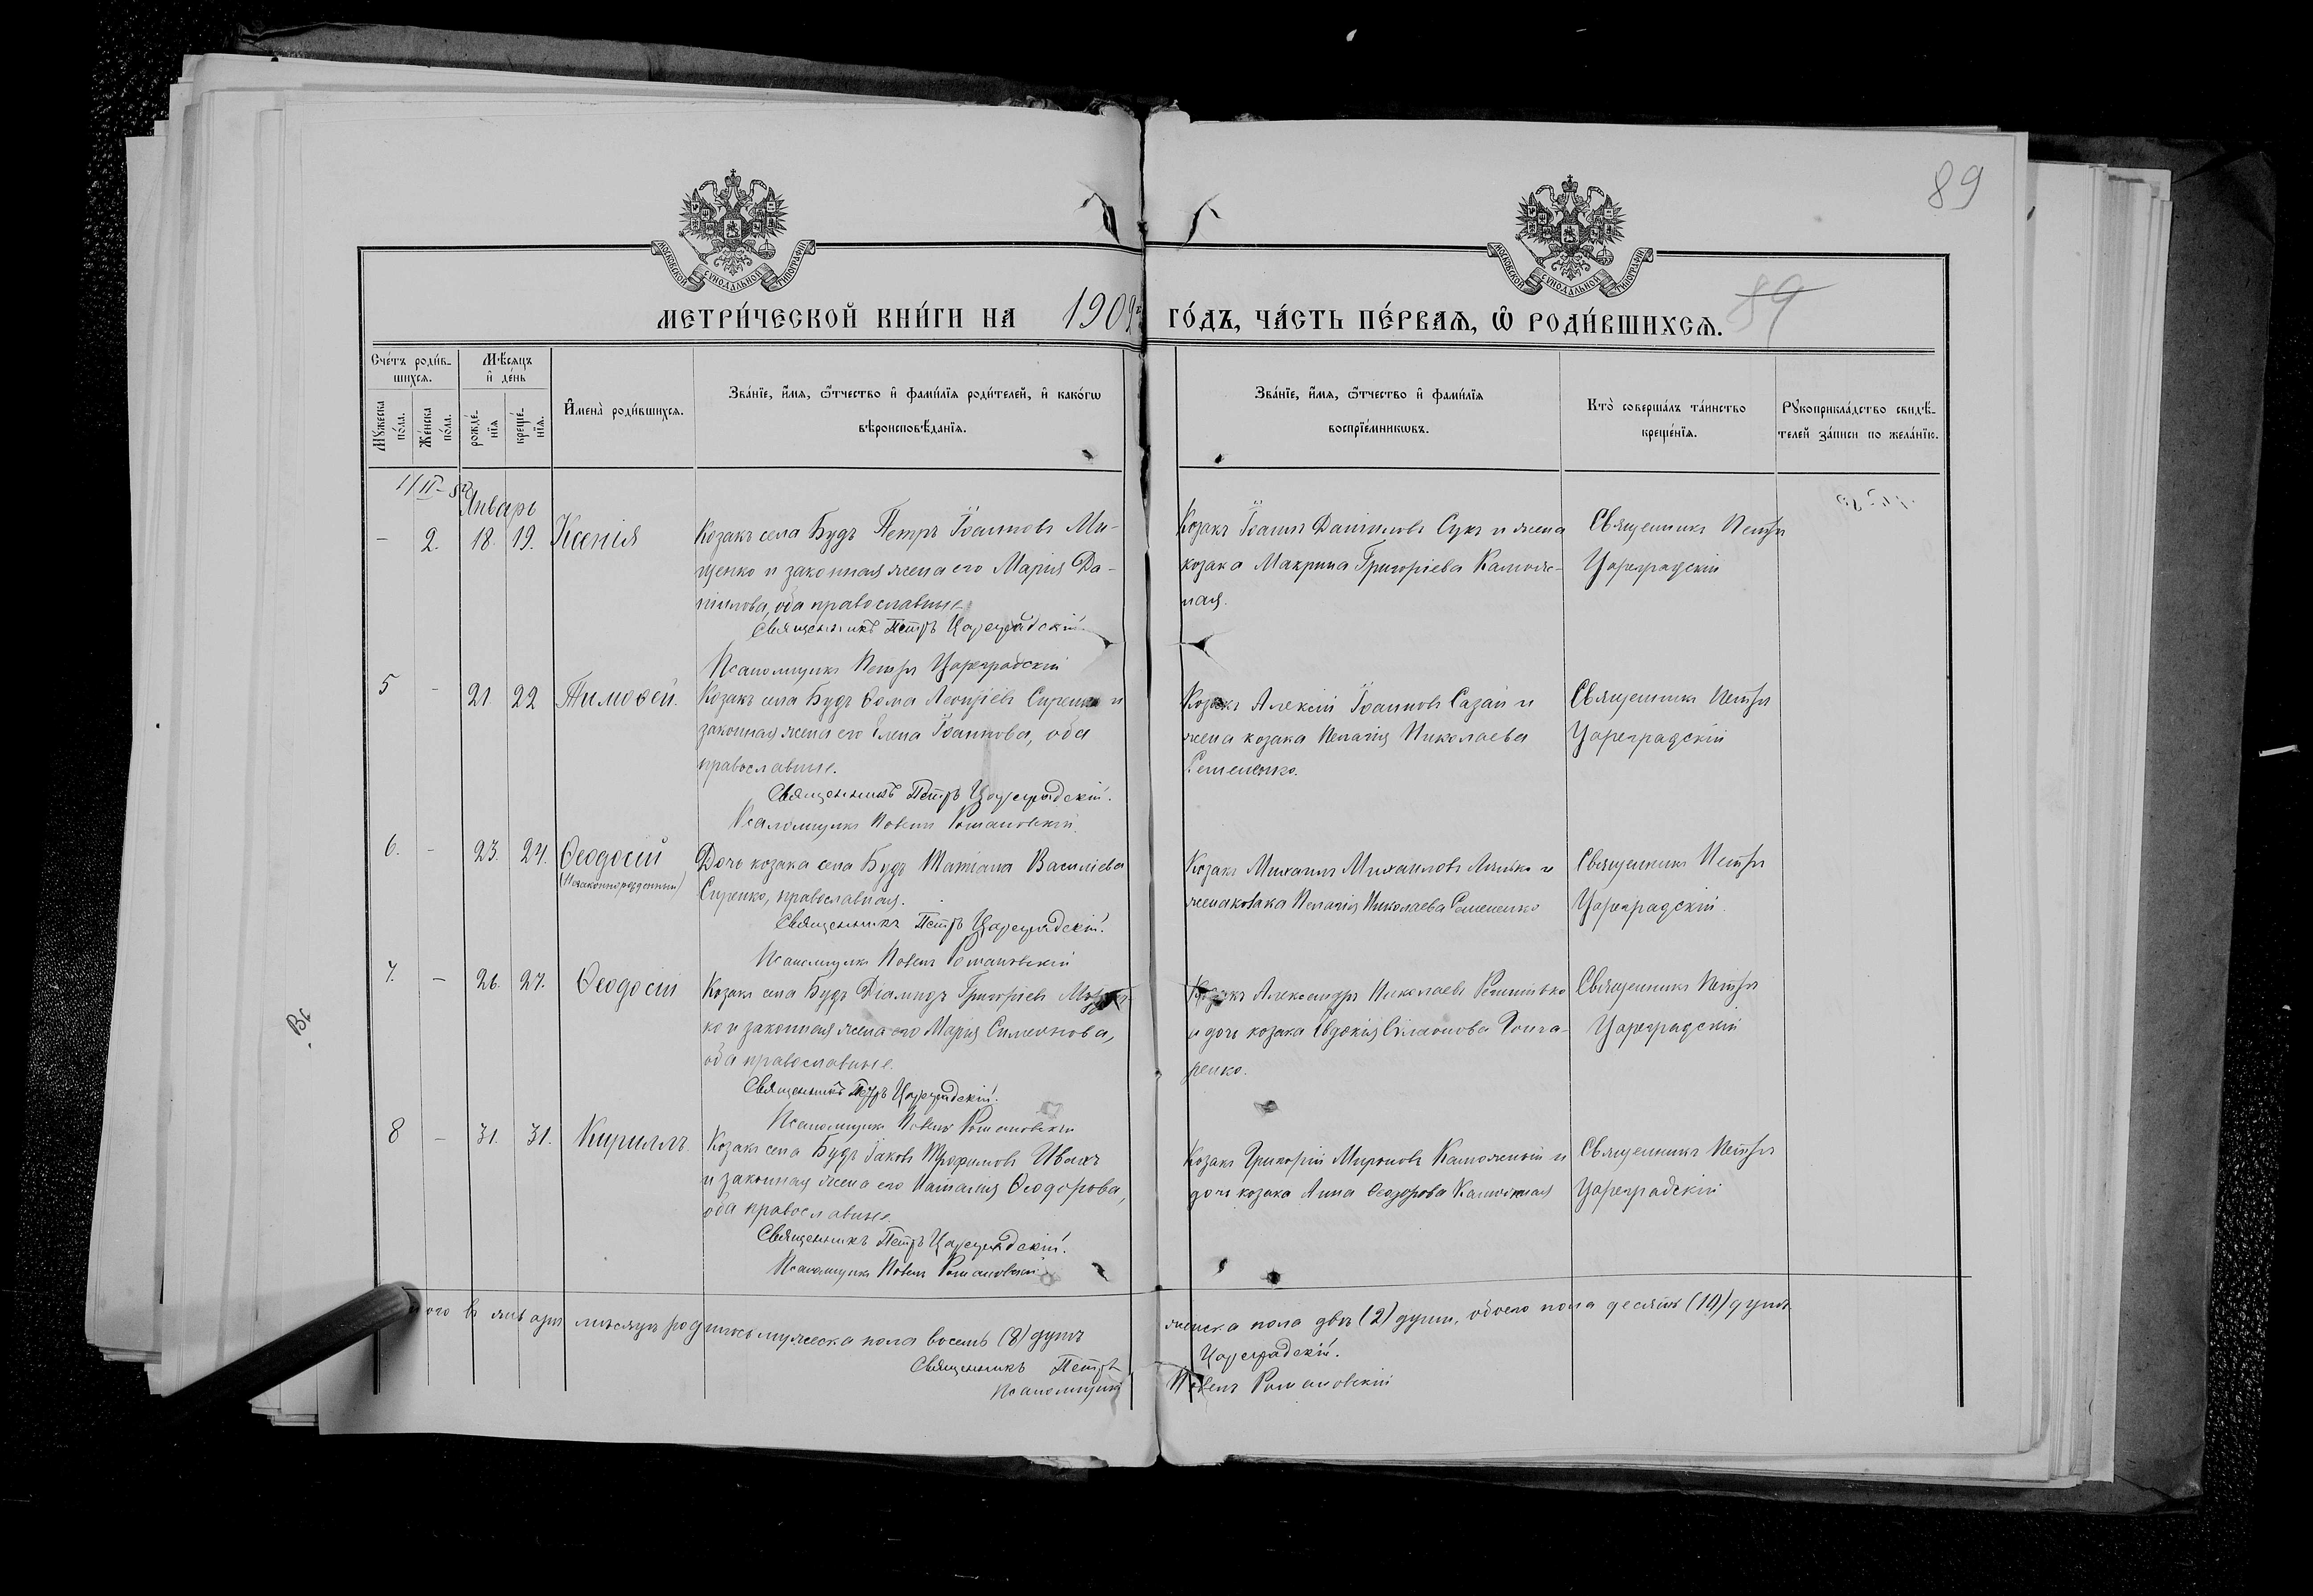 89
МОСКОВСКОЙ СѴНОДАЛЬНОЙ ТИПОГРАФІИ
МОСКОВСКОЙ СѴНОДАЛЬНОЙ ТИПОГРАФІИ
МЕТРИ́ЧЕСКОЙ КНИ́ГИ НА 1902 ГО́ДЪ, ЧА́СТЬ ПЕ́РВАЯ, Ѿ РОДИ́ВШИХСѦ. 89
Сче́тъ роди́в-
шихся.
Мꙋ́жеска по́ла.
Же́нска по́ла.
Мѣ́сяцъ
и҆ де́нь
рожде́-
нїя
креще́-
нїя.
И҆мена̀ роди́вшихся.
Зва́нїе, и҆́мя, ѻ҆́тчество и҆ фами́лїя роди́телей, и҆ како́гѡ
вѣроисповѣ́данїя.
Зва́нїе, и҆́мя, ѻ҆́тчество и҆ фами́лїя
воспрїе́мникѡвъ.
Кто̀ соверша́лъ та́инство
креще́нїя.
Рꙋкоприкла́дство свидѣ́-
телей за́писи по жела́нїю.
Январь
- 2. 18. 19. Ксенія
Козакъ села Будъ Петръ Іоанновъ Ми-
щенко и законная жена его Марія Да-
ніилова, оба православные
Священникъ Петръ Цареградскій.
Псаломщикъ Цареградскій
Козакъ Іоаннъ Даніиловъ Сукъ и жена
козака Макрина Григоріева Каполе-
ная.
Священникъ Петръ
Цареградскій
5 - 21. 22 Тимоѳей.
Козакъ села Будъ Ѳома Леонтіевъ Сиренко и
законная жена его Елена Іоаннова, оба
православные.
Священникъ Петръ Цареградскій.
Псаломщикъ Павелъ Романовскій.
Козакъ Алексій Іоанновъ Сазан и
жена козака Пелагія Николаева
Семененко.
Священникъ Петръ
Цареградскій
6. - 23. 24. Ѳеодосій
(Незаконнорожденный)
Дочь козака села Будъ Татіана Василіева
Сиренко, православная.
Священникъ Петръ Цареградскій.
Псаломщикъ Павелъ Романовскій
Козакъ Михаилъ Михаиловъ и
жена козака Пелагія Николаева Семененко
Священникъ Петръ
Цареградскій.
7. - 26. 27. Ѳеодосій
Козакъ села Будъ Діамидъ Григоріевъ
ко и законная жена его Марія Симеонова,
оба православные.
Священникъ Петръ Цареградскій.
Псаломщикъ Павелъ Романовскій
Козакъ Александръ Николаевъ
и дочь козака Евдокія Симеонова Гонча-
ренко.
Священникъ Петръ
Цареградскій
8 - 31. 31. Кириллъ.
Козакъ села Будъ Іаковъ Трофимовъ Ивахъ
и законная жена его Наталія Ѳеодорова,
оба православные.
Священникъ Петръ Цареградскій.
Псаломщикъ Павелъ Романовскій
Козакъ Григорій Мироновъ и
дочь козака Анна Ѳеодорова
Священникъ Петръ
Цареградскій
Вс
Итого въ январѣ мѣсяцѣ родилось мужеска пола восемь (8) душъ
женска пола двѣ (2) души, обоего пола десять (10) душъ
Священникъ Петръ Цареградскій.
Псаломщикъ Павелъ Романовскій